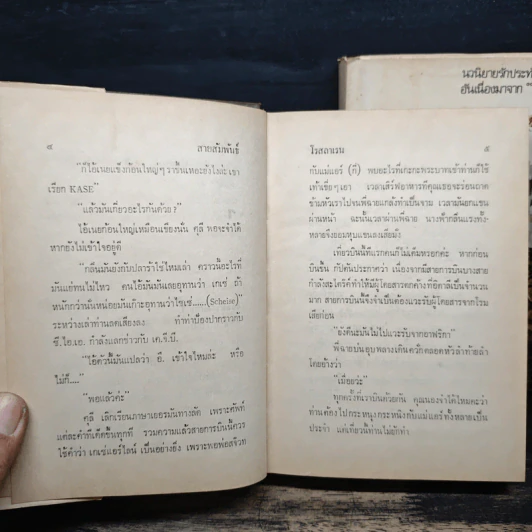 ๔ สายสัมพันธ์
"ก็ไอ้เนยแข็งก้อนใหญ่ๆ ราขึ้นเหอะยังไงล่ะ เขา
เรียก KASE"
"แล้วมันเกี่ยวอะไรกันด้วย?"
ไอ้เนยก้อนใหญ่เหมือนเขียงนั้น คุลี พอจะจำได้
หากยังไม่เข้าใจอยู่ดี
"กลิ่นมันยังกับปลาร้าใช่ไหมเล่า คราวนี้อะไรที่
มันแย่ทนไม่ไหว คนไอ้มันมันเลยอุทานว่า เกเซ่ ถ้า
หนักกว่านั้นหน่อยมันก็จะอุทานว่าไชเซ่......(Scheise)"
ระหว่างเล่าท่านลดเสียงลง ทำท่าเบื่อปากราวกับ
ซี.ไอ.เอ. กำลังแลกข่าวกับ เค.จี.บี.
"ไอ้คำนี้มันแปลว่า อี. เข้าใจไหมล่ะ หรือ
ไม่ก็....."
"พอแล้วค่ะ"
คุลี เลิกเรียนภาษาเยอรมันทางลัด เพราะศัพท์
แต่ละคำที่เด็ดขึ้นทุกที รวมความแล้วสายการบินนี้ควร
ใช้คำว่า เกเซ่แอร์ไลน์ เป็นอย่างยิ่ง เพราะพอพ่อสจ๊วต
โรสลาเรน ๕
กับแม่แอร์ (กี่) พบอะไรที่เกะกะพระบาทเข้าท่านก็ใช้
เท้าเขี่ยๆ เอา เวลาเสิร์ฟอาหารที่คุณเธอจะร่อนถาด
ข้ามหัวเราไปจนพี่ฉายแกลงท่าเป็นจาน เวลามันยกแขน
ผ่านหน้า ฉะนั้นเวลาผ่านพี่ฉาย นางฟ้ากลิ่นแรงทั้ง-
หลายจึงยอมหุบแขนลงเสียมั่ง
เที่ยวบินนี้ทีแรกคนก็ไม่เต็มหรอกค่ะ หากก่อน
บินขึ้น กัปตันประกาศว่า เนื่องจากมีสายการบินบางสาย
กำลังสะไตร๊ค์ทำให้มีผู้โดยสารตกค้างที่อิตาลีเป็นจำนวน
มาก สายการบินนี้จึงจำเป็นต้องแวะรับผู้โดยสารจากโรม
เสียก่อน
"ยังดีนะมันไม่ไปแวะรับจากอัฟริกา"
พี่ฉายบ่นอุบพลางเดินควั่กคลอดหัวลำท้ายลำ
โดยอ้างว่า
"เมื่อยว่ะ"
ทุกครั้งที่เราบินด้วยกัน คุณน้องจำได้ไหมคะว่า
ท่านต้องไปกระหนุงกระหนิงกับแม่แอร์ทั้งหลายเป็น
ประจำ แต่เที่ยวนี้ท่านไม่ยักทำ
นวนิยายรักประทับ
อันเนื่องมาจาก